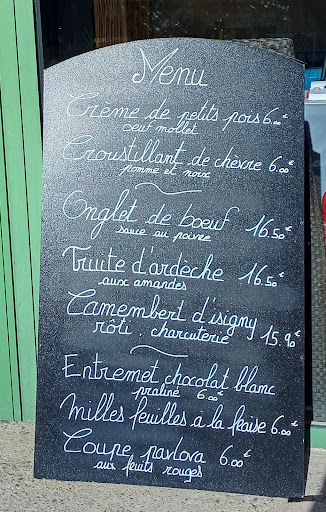 Menu
Crème de petits pois 6.00€
oeuf mollet
Croustillant de chèvre 6.00€
pomme et noix
Onglet de boeuf 16.50€
sauce au poivre
Truite d'ardèche 16.50€
aux amandes
Camembert d'isigny
rôti, charcuterie 15.90€
Entremet chocolat blanc
praliné 6.00€
Milles feuilles à la fraise 6.00€
Coupe pavlova 6.00€
aux fruits rouges